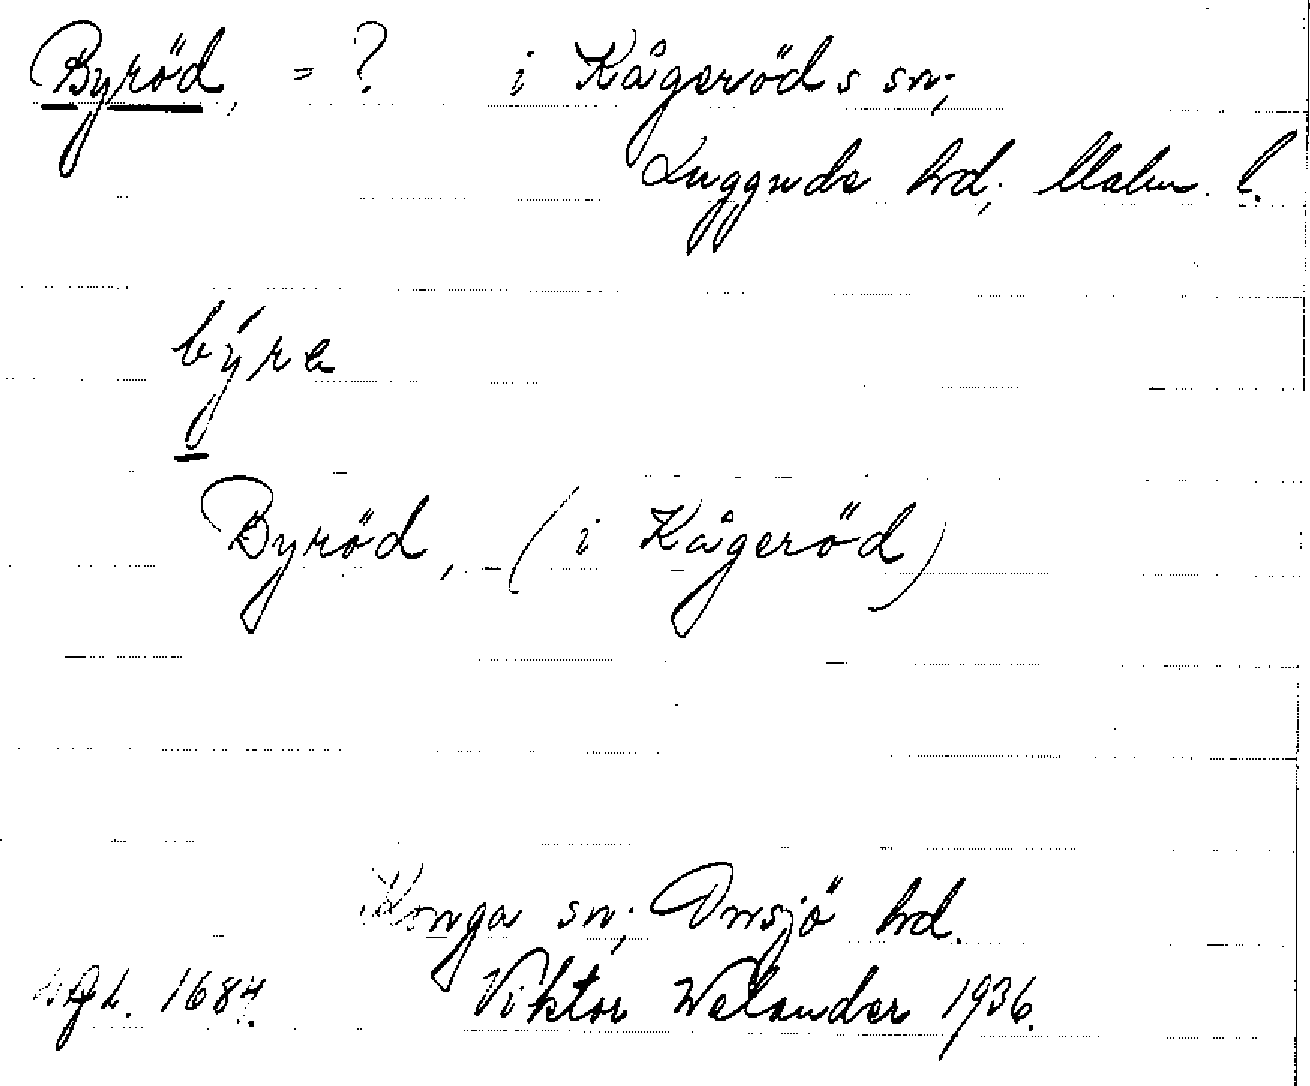 Byröd, = ? i Kågeröds sn;
Luggude hd; Malm. l.
býra
Byröd, - (i Kågeröd)
Konga sn; Onsjö hd.
1684. Viktor Welander 1936.